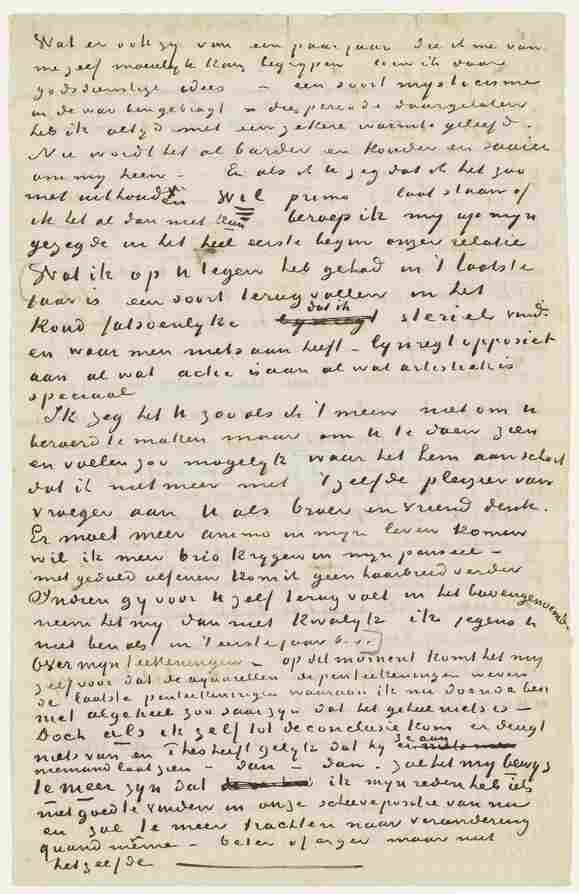 Wat er ook zy van een paar jaar die ik me van
me zelf moeielyk kan begrypen toen ik door
godsdienstige idees – een soort mysticisme
in de war ben gebragt – die periode daargelaten
heb ik altyd met een zekere warmte geleefd.
Nu wordt het al barder en kouder en saaier
om my heen – En als ik U zeg dat ik het zoo
niet uithoud wil primo laat staan of
ik het al dan niet kan beroep ik my op myn
gezegde in het heel eerste begin onzer relatie
Wat ik op U tegen heb gehad in 't laatste
jaar is een soort terugvallen in het
koud fatsoenlyke dat ik steriel vind
en waar men niets aan heeft – lynregt opposiet
aan al wat actie is aan al wat artistiek is
speciaal
Ik zeg het U zoo als ik 't meen niet om U
beroerd te maken maar om U te doen zien
en voelen zoo mogelyk waar het hem aan schort
dat ik niet meer met 't zelfde pleizier van
vroeger aan U als broer en vriend denk.
Er moet meer animo in myn leven komen
wil ik meer brio krygen in myn penseel –
met geduld oefenen kom ik geen haarbreed verder
Indien gy voor U zelf terug valt in het bovengenoemde
neem het my dan niet kwalyk ik jegens U
niet ben als in 't eerste jaar b.v.
Over myn teekeningen – op dit moment komt het my
zelf voor dat de aquarellen de penteekeningen wevers
de laatste penteekeningen waaraan ik nu doende ben
niet algeheel zoo saai zyn dat het geheel niets is –
Doch als ik zelf tot de conclusie kom er deugt
niets van en Theo heeft gelyk dat hy ze aan
niemand laat zien – dan – dan. zal het my bewys
te meer zyn dat ik myn reden heb iets
niet goed te vinden in onze scheeve positie van nu
en zal te meer trachten naar verandering
quand même – beter of erger maar niet
hetzelfde